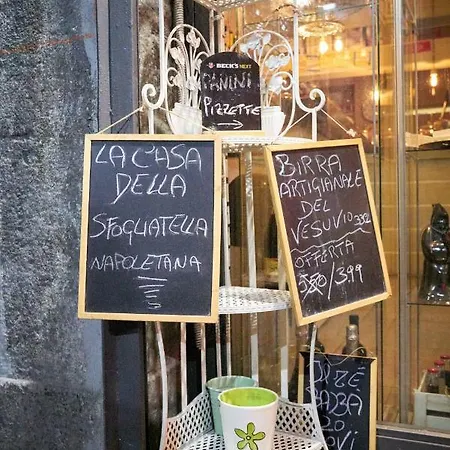 BECK'S NEXT
PANINI
PIZZETTE
LA CASA
DELLA
SFOGLIATELLA
NAPOLETANA
BIRRA
ARTIGIANALE
DEL
VESUVIO 33CL
OFFERTA
5,50/3.99
BABA